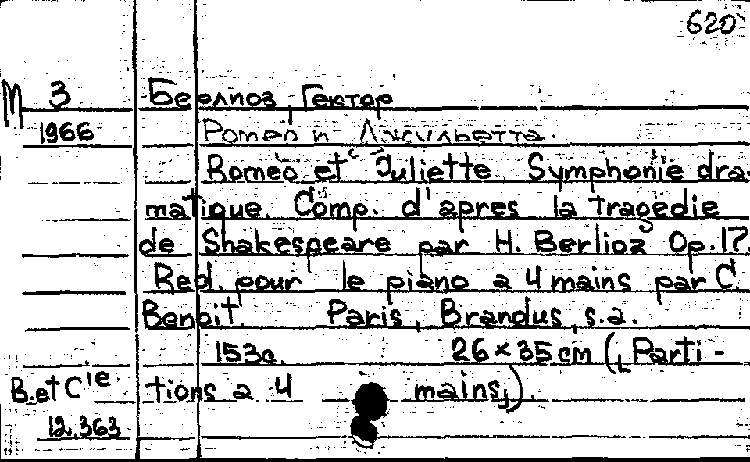 620
M 3 Берлиоз, Гектор
1966 Ромео и Джульетта.
Romeo et Juliette. Symphonie dra-
matique. Comp. d'apres la tragedie
de Shakespeare par H. Berlioz Op.17.
Red. pour le piano a 4 mains par C.
Benoit. Paris, Brandus, s.a.
153с. 26×35cm (Parti-
B. et Cie tions a 4 mains).
12.363